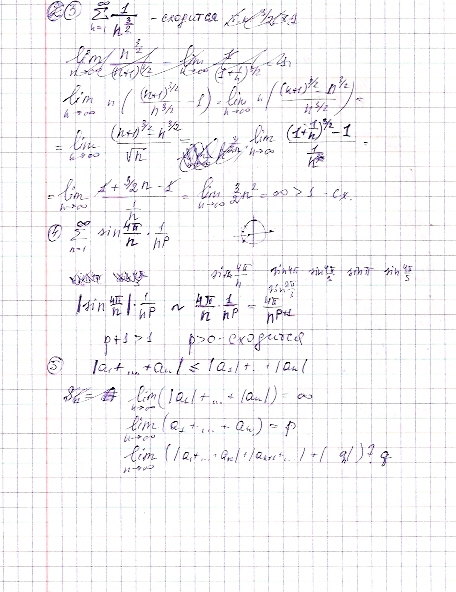 ③ \sum_{n=1}^{\infty} \frac{1}{n^{\frac{3}{2}}} - сходится
\lim_{n→∞} \frac{n^{\frac{3}{2}}}{(n+1)^{3/2}} = \lim_{n→∞} \frac{1}{(1+\frac{1}{n})^{3/2}}
\lim_{n→∞} n ( \frac{(n+1)^{3/2}}{n^{3/2}} - 1 ) = \lim_{n→∞} n ( \frac{(n+1)^{3/2} - n^{3/2}}{n^{3/2}} ) =
= \lim_{n→∞} \frac{(n+1)^{3/2} - n^{3/2}}{\sqrt{n}} = \lim_{n→∞} \frac{(1+\frac{1}{n})^{3/2} - 1}{\frac{1}{n}} =
= \lim_{n→∞} \frac{1 + 3/2 n - 1}{\frac{1}{n}} = \lim_{n→∞} \frac{3}{2} n^2 = ∞ > 1 - сх.
④ \sum_{n=1}^{∞} \sin \frac{4π}{n} · \frac{1}{n^p}
\sin \frac{4π}{n} \sin 4π \sin \frac{4π}{3} \sin π \sin \frac{4π}{5}
|\sin \frac{4π}{n}| · \frac{1}{n^p} ~ \frac{4π}{n} · \frac{1}{n^p} = \frac{4π}{n^{p+1}}
p+1 > 1 p>0 - сходится
⑤ |a_1 + ... + a_n| ≤ |a_1| + .. + |a_n|
\lim_{n→∞} (|a_1| + ... + |a_n|) = ∞
\lim_{n→∞} (a_1 + ... + a_n) = p
\lim_{n→∞} (|a_1 + ... + a_n| + |a_{n+1} + ... | + | q|) ? q